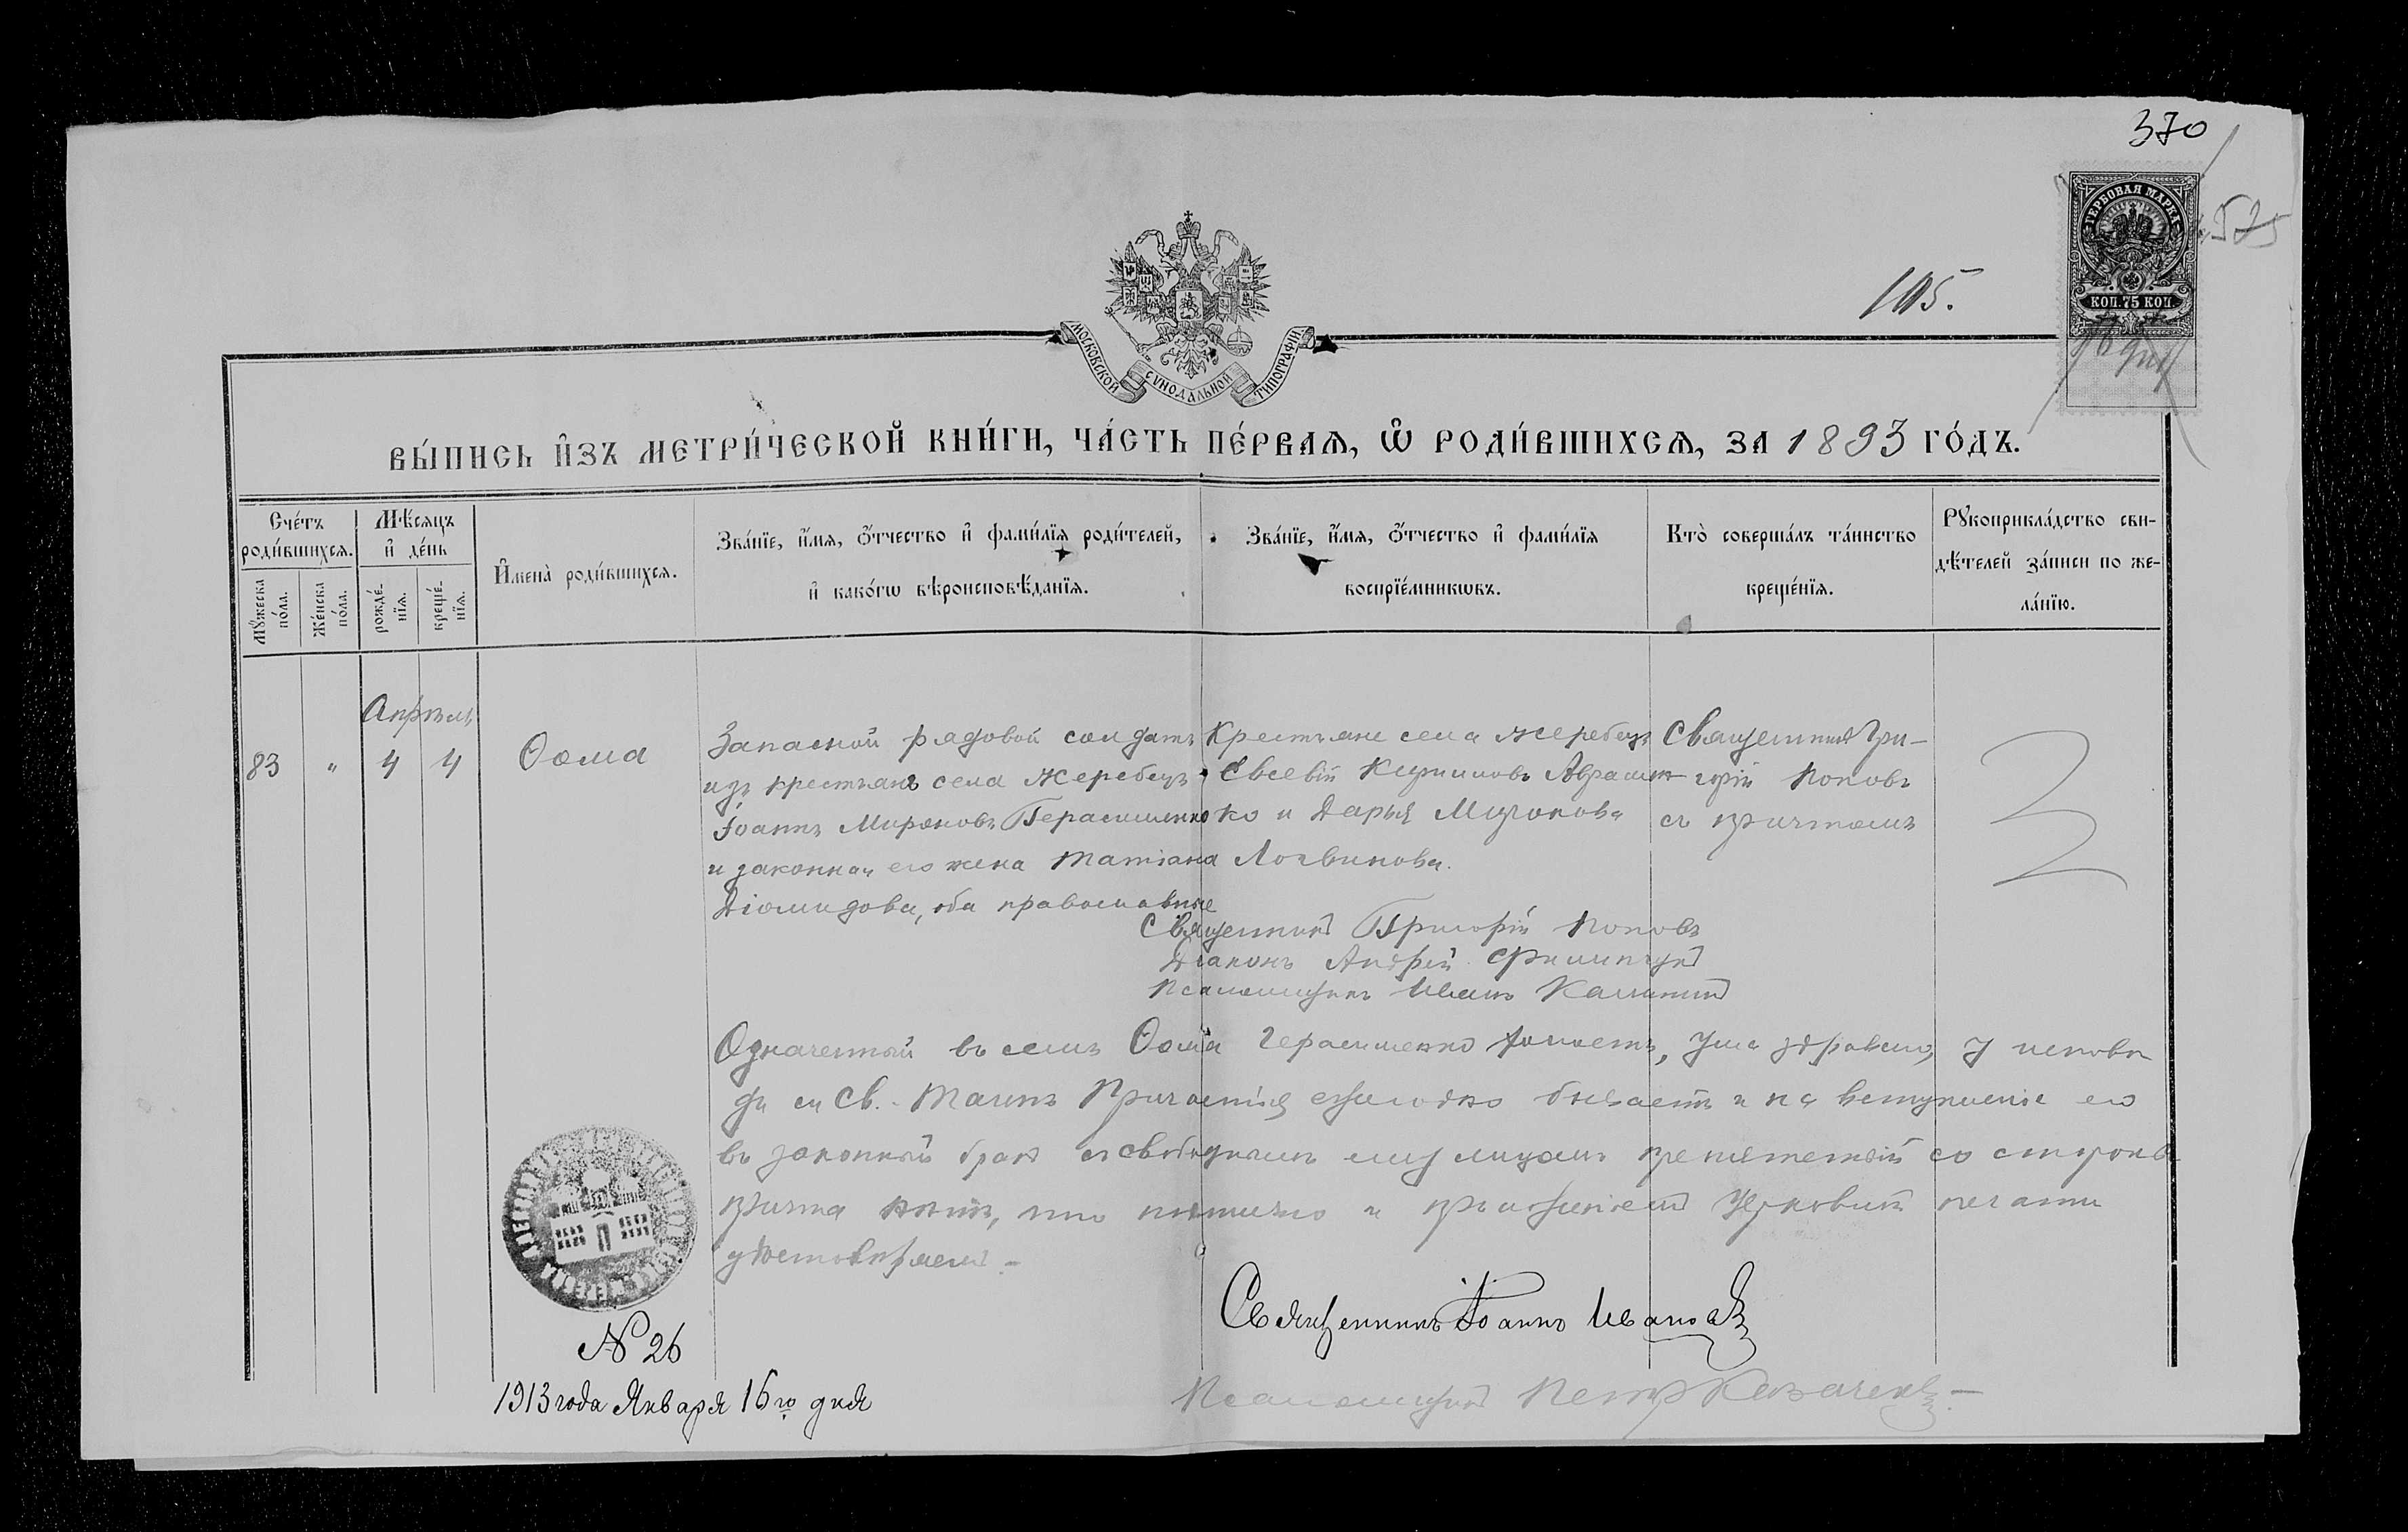 370
ГЕРБОВАЯ МАРКА
КОП. 75 КОП.
525
105.
МОСКОВСКОЙ СѴНОДАЛЬНОЙ ТИПОГРАФІИ
ВЫ́ПИСЬ И҆ЗЪ МЕТРИ́ЧЕСКОЙ КНИ́ГИ, ЧА́СТЬ ПЕ́РВАѦ, Ѽ РОДИ́ВШИХСѦ, ЗА 1893 ГО́ДЪ.
Сче́тъ роди́вшихсѧ.
Мꙋ́жеска по́ла.
Же́нска по́ла.
Мѣ́сѧцъ и҆ де́нь
рожде́-нїѧ.
креще́-нїѧ.
И҆мена̀ роди́вшихсѧ.
Зва́нїе, и҆́мѧ, ѻ҆́тчество и҆ фами́лїѧ роди́телей,
и҆ како́гѡ вѣроисповѣ́данїѧ.
Зва́нїе, и҆́мѧ, ѻ҆́тчество и҆ фами́лїѧ
воспрїе́мникѡвъ.
Кто̀ соверша́лъ та́инство
креще́нїѧ.
Рꙋкоприкла́дство сви-
дѣ́телей за́писи по же-
ла́нїю.
Апрѣль
83 " 4 4
Ѳома
Запасной рядовой солдатъ
изъ крестьянъ села Жеребецъ
Іоаннъ Мироновъ Герасименко
и законная его жена Татіана
Діомидова, оба православные
Крестьяне села Жеребецъ
Евсевій Авраменко
ко и Дарья
Логвинова.
Священникъ Гри-
горій Поповъ
съ причтомъ
Священникъ Григорій Поповъ
Діаконъ Андрей
Псаломщикъ Иванъ Калинин
Означенный въ семъ Ѳома Герасименко холостъ, ума здраваго, у испове
ди и Св. Таинъ Причастія ежегодно бываетъ и на вступленіе его
въ законный бракъ съ свободнымъ лицомъ препятствій со стороны
причта нѣтъ, что подписью и приложеніемъ церковной печати
удостовѣряемъ. –
Священникъ Іоаннъ Ивановъ
Псаломщикъ Петръ Казаченко
№ 26
1913 года Января 16го дня